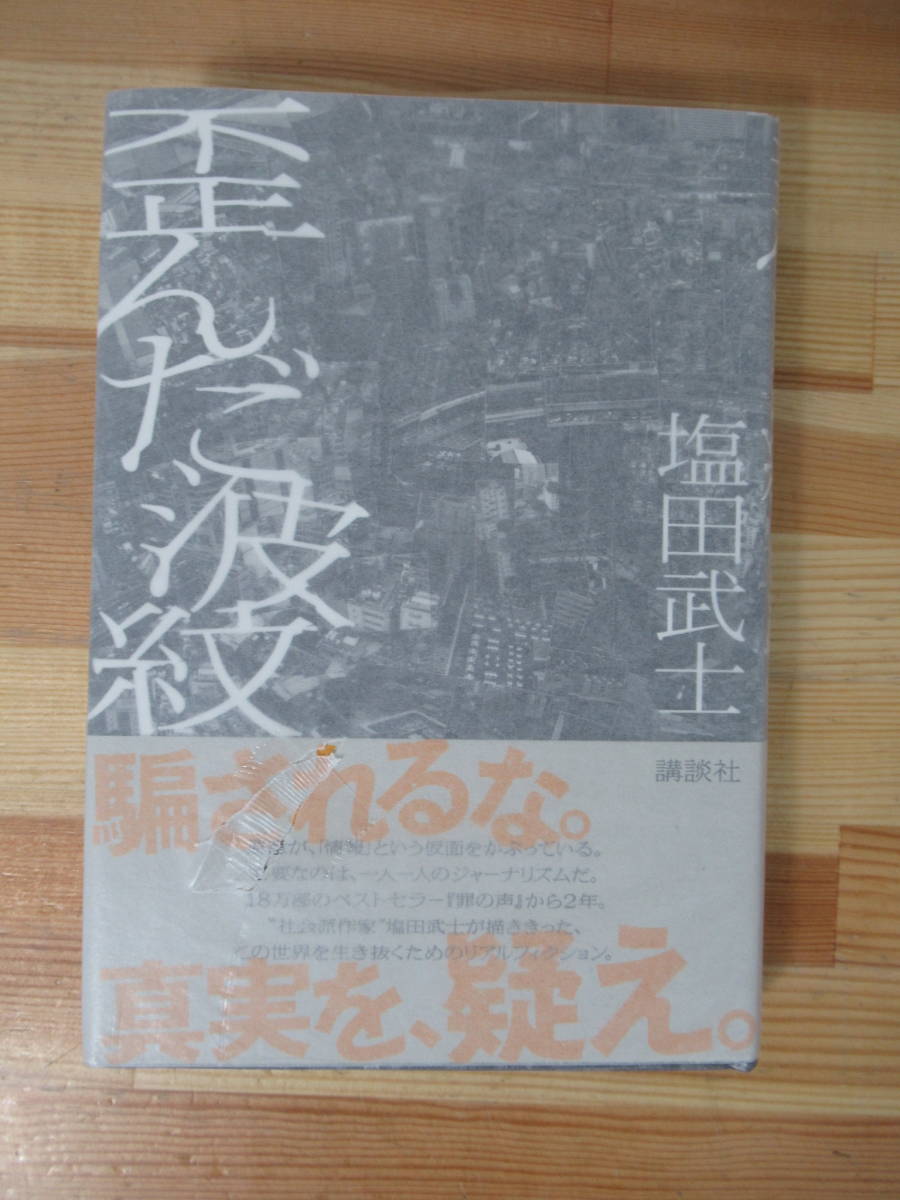 歪んだ波紋
塩田武士
講談社
騙されるな。
が、「情報」という仮面をかぶっている。
要なのは、一人一人のジャーナリズムだ。
18万部のベストセラー『罪の声』から2年。
“社会派作家”塩田武士が描ききった、
この世界を生き抜くためのリアルフィクション。
真実を、疑え。